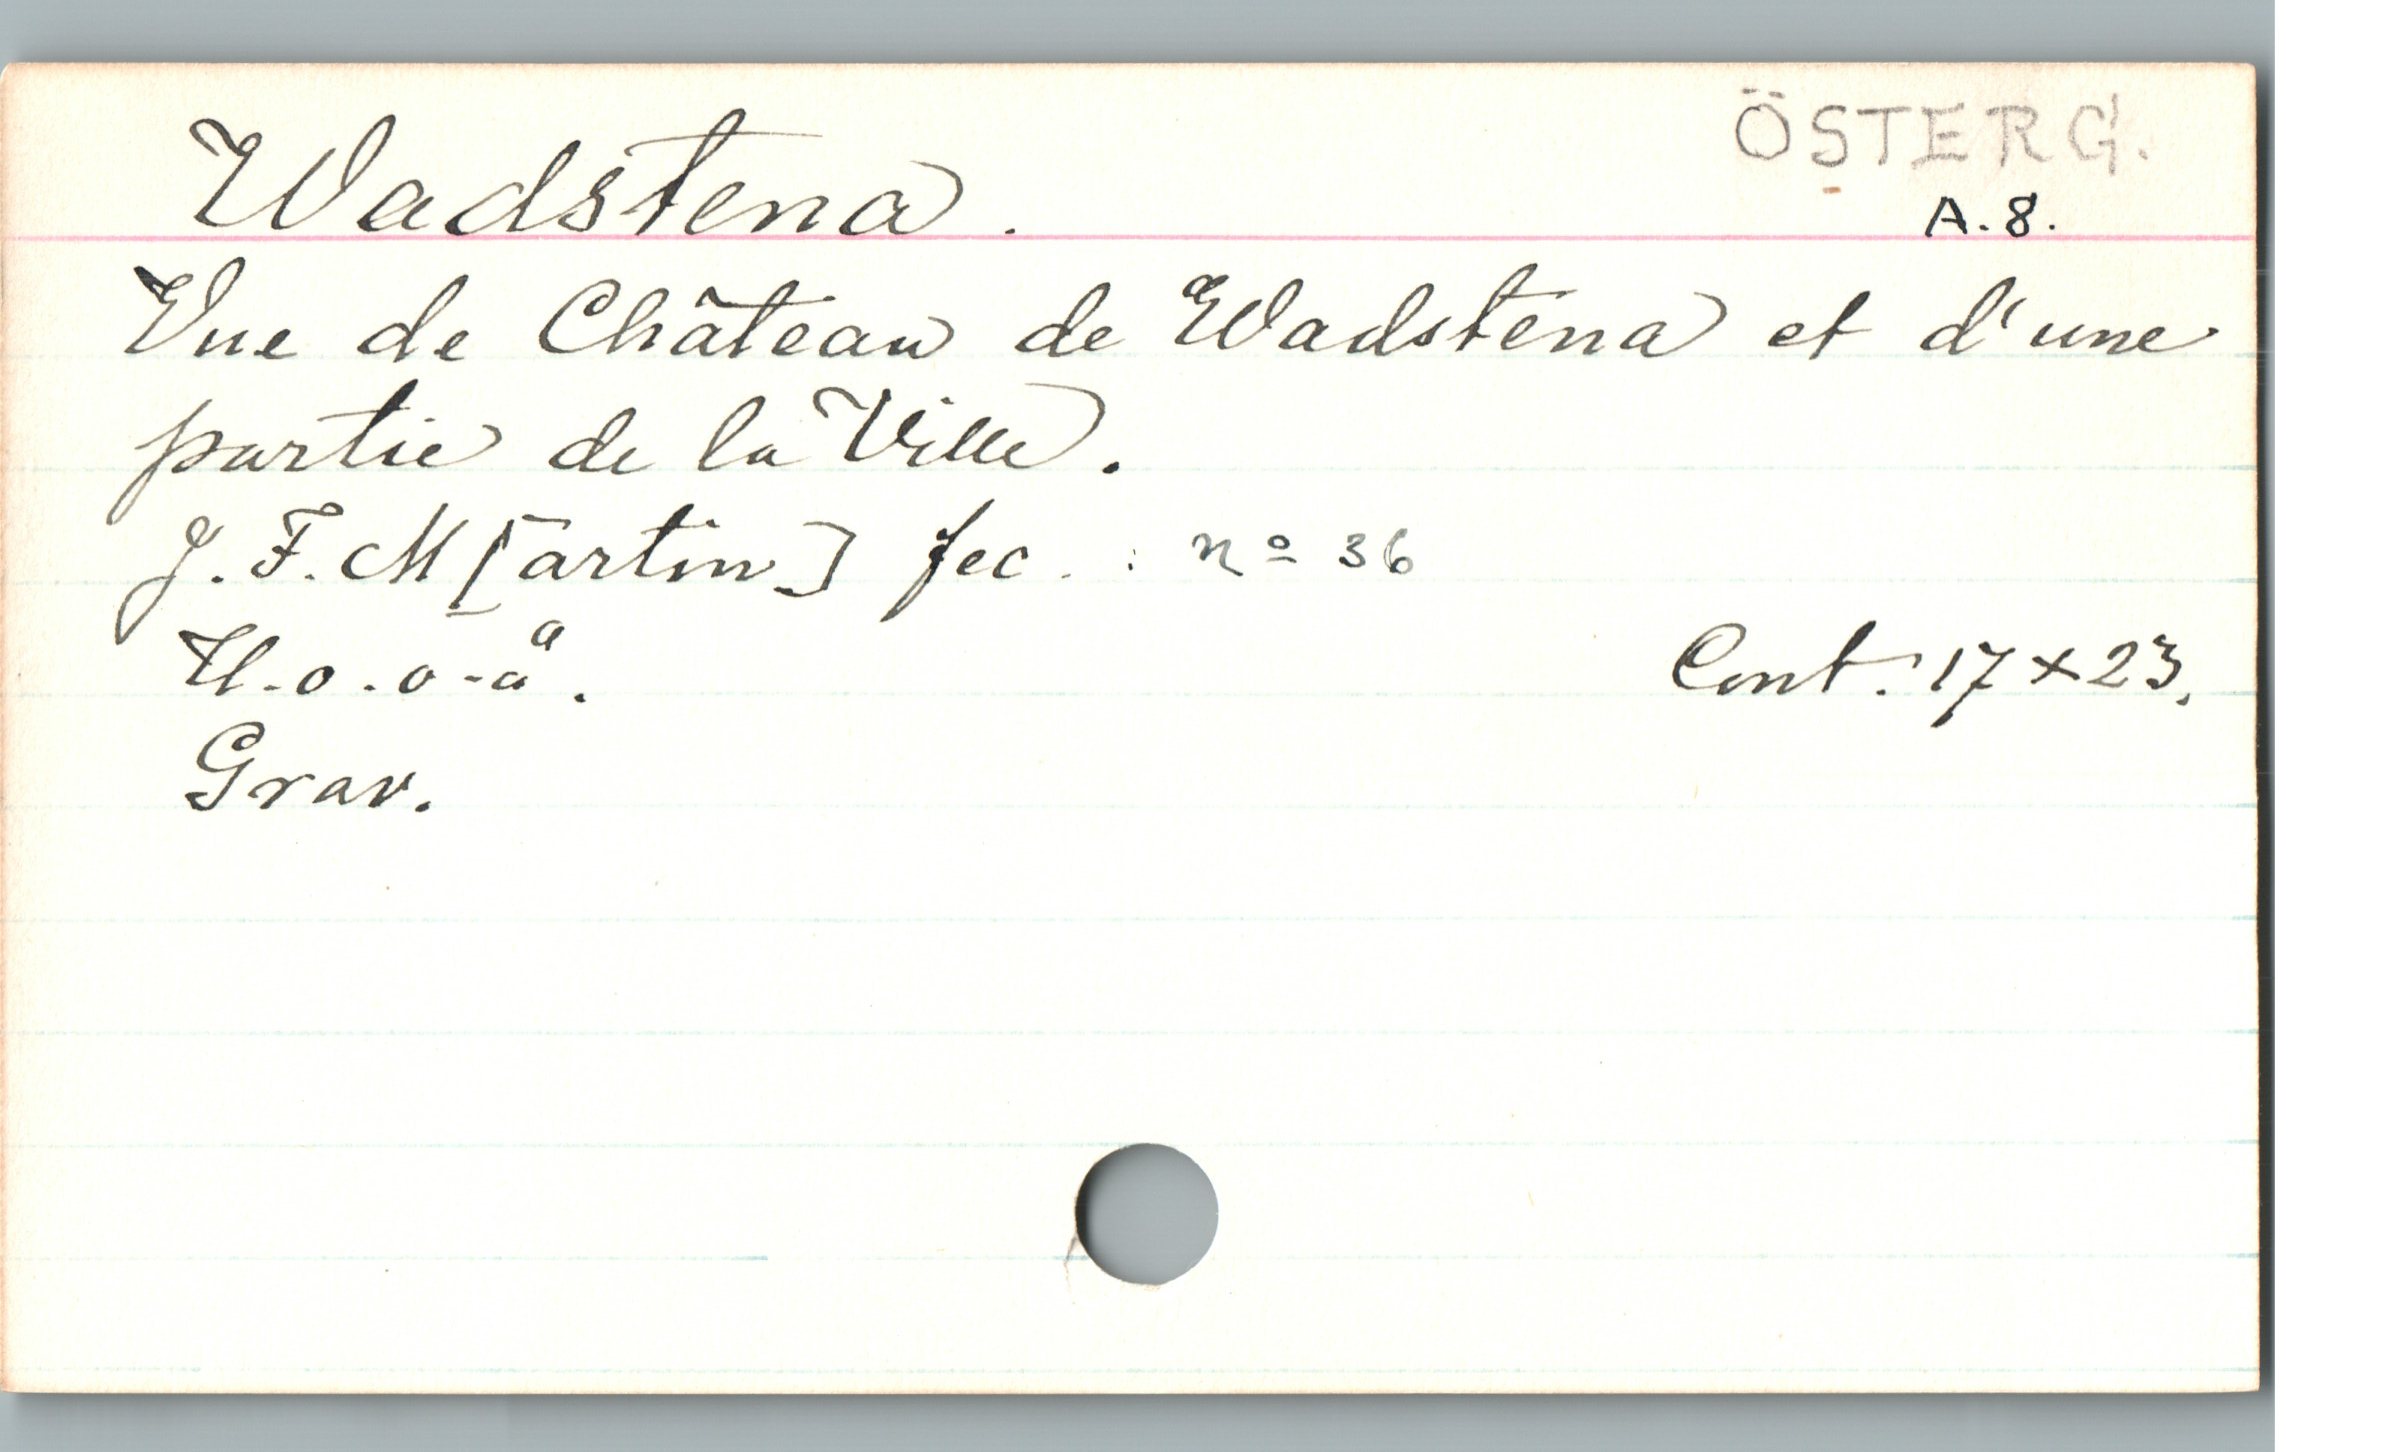 ÖSTERG.
Wadstena.
A.8.
Vue de Château de Wadstena et d'une
partie de la Ville.
J. F. M [artin] fec. : nº 36
U.o.o-å.
Cont. 17 x 23.
Grav.